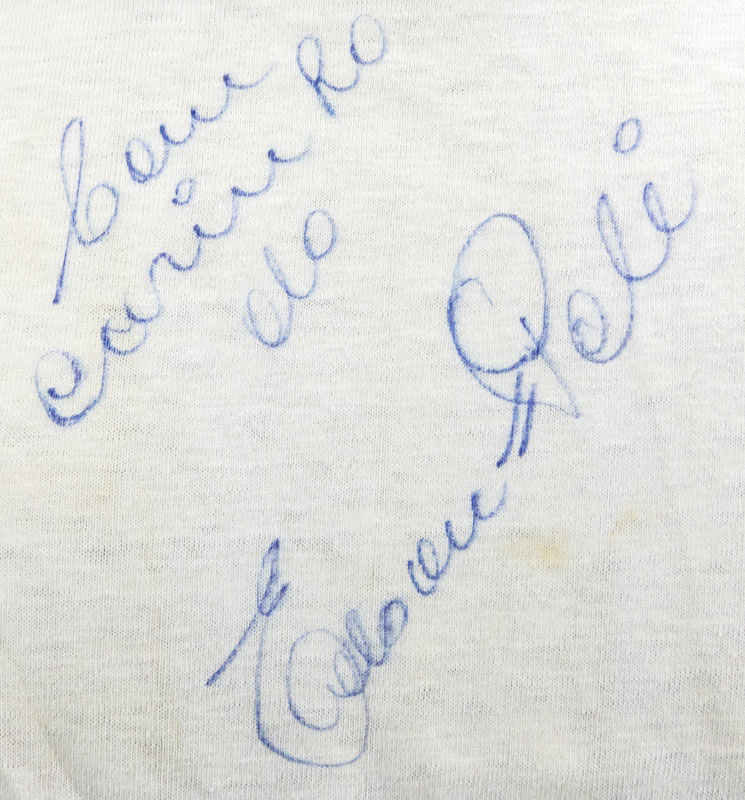 Com
carinho
do
Edson = Pelé